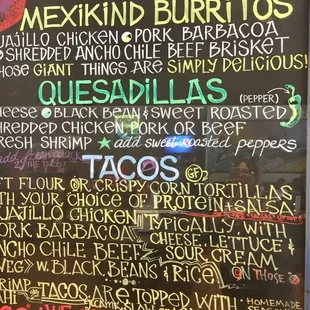 MEXIKIND BURRITOS
UAJILLO CHICKEN • PORK BARBACOA
SHREDDED ANCHO CHILE BEEF BRISKET
HOSE GIANT THINGS ARE SIMPLY DELICIOUS!
QUESADILLAS (PEPPER)
HEESE • BLACK BEAN & SWEET ROASTED
HREDDED CHICKEN, PORK OR BEEF
RESH SHRIMP ★ add sweet roasted peppers
TACOS GF?
FT FLOUR OR CRISPY CORN TORTILLAS
ITH YOUR CHOICE OF PROTEIN + SALSA:
UAJILLO CHICKEN TYPICALLY, WITH
ORK BARBACOA CHEESE, LETTUCE &
NCHO CHILE BEEF SOUR CREAM
VEG W. BLACK BEANS & RICE ON THOSE
HRIMP TACOS ARE TOPPED WITH
HOMEMADE